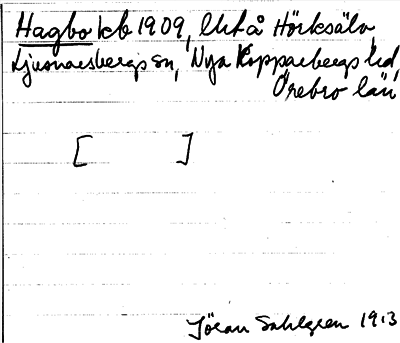 Hagbo kb 1909, lht å Hörksäla
Ljusnarsbergs sn, Nya Kopparbergs hd,
Örebro län
[ ]
Jöran Sahlgren 1913